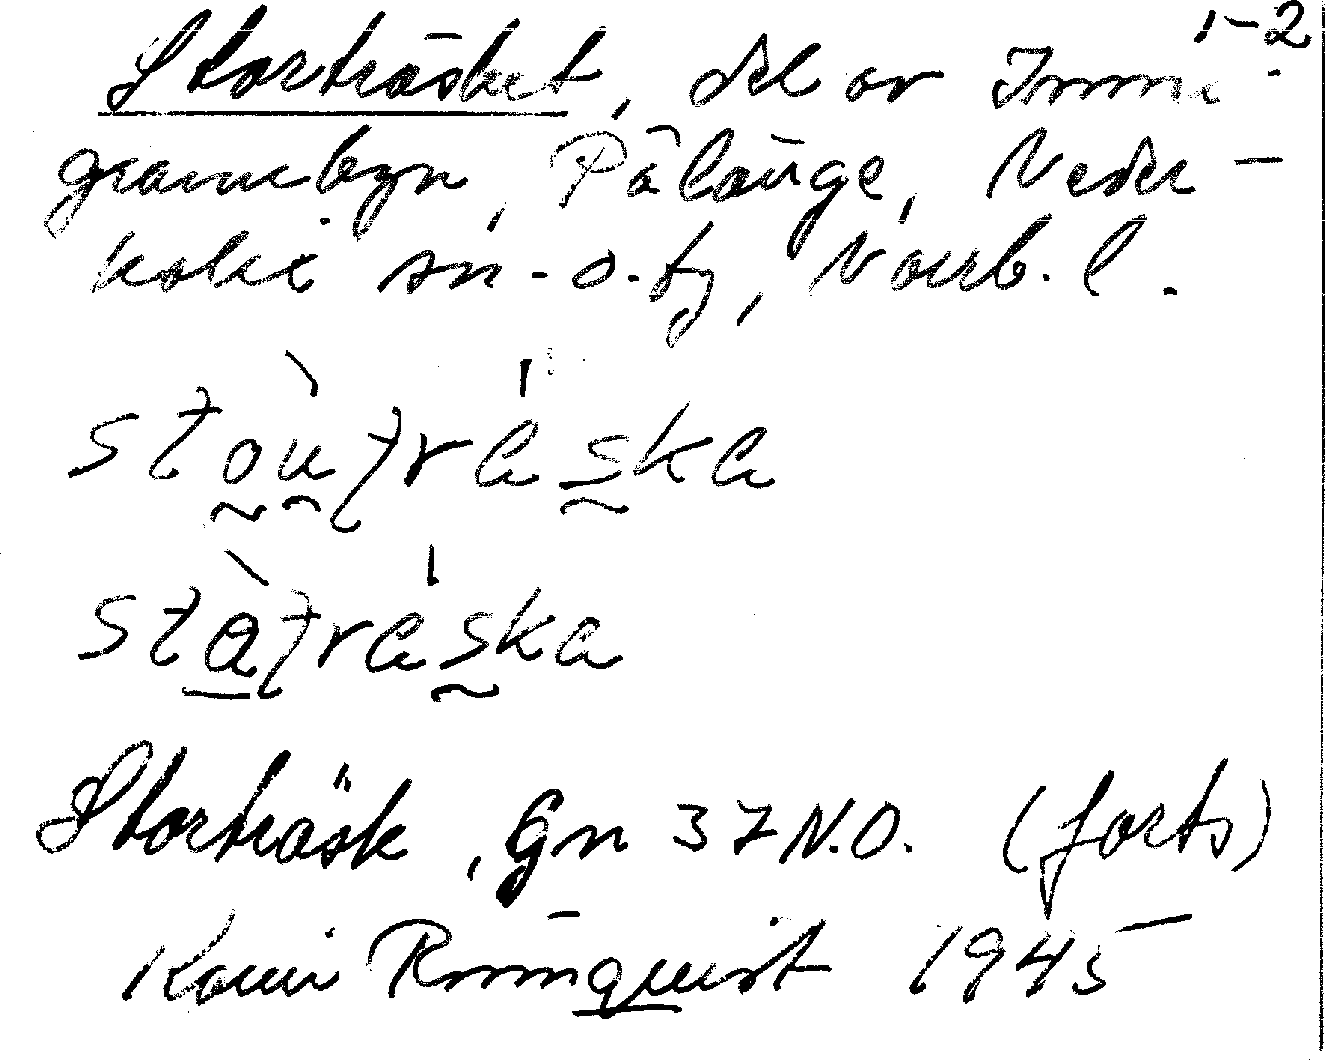 1-2
Storträsket, del av Innni-
grannebyn, Pålänge, Neder-
kalix sn. o. tg, Norrb. l.
stou̯tra̍ska
statra̍ska
Storträsk, Gn 37 N.O. (forts)
Rönnquist 1945